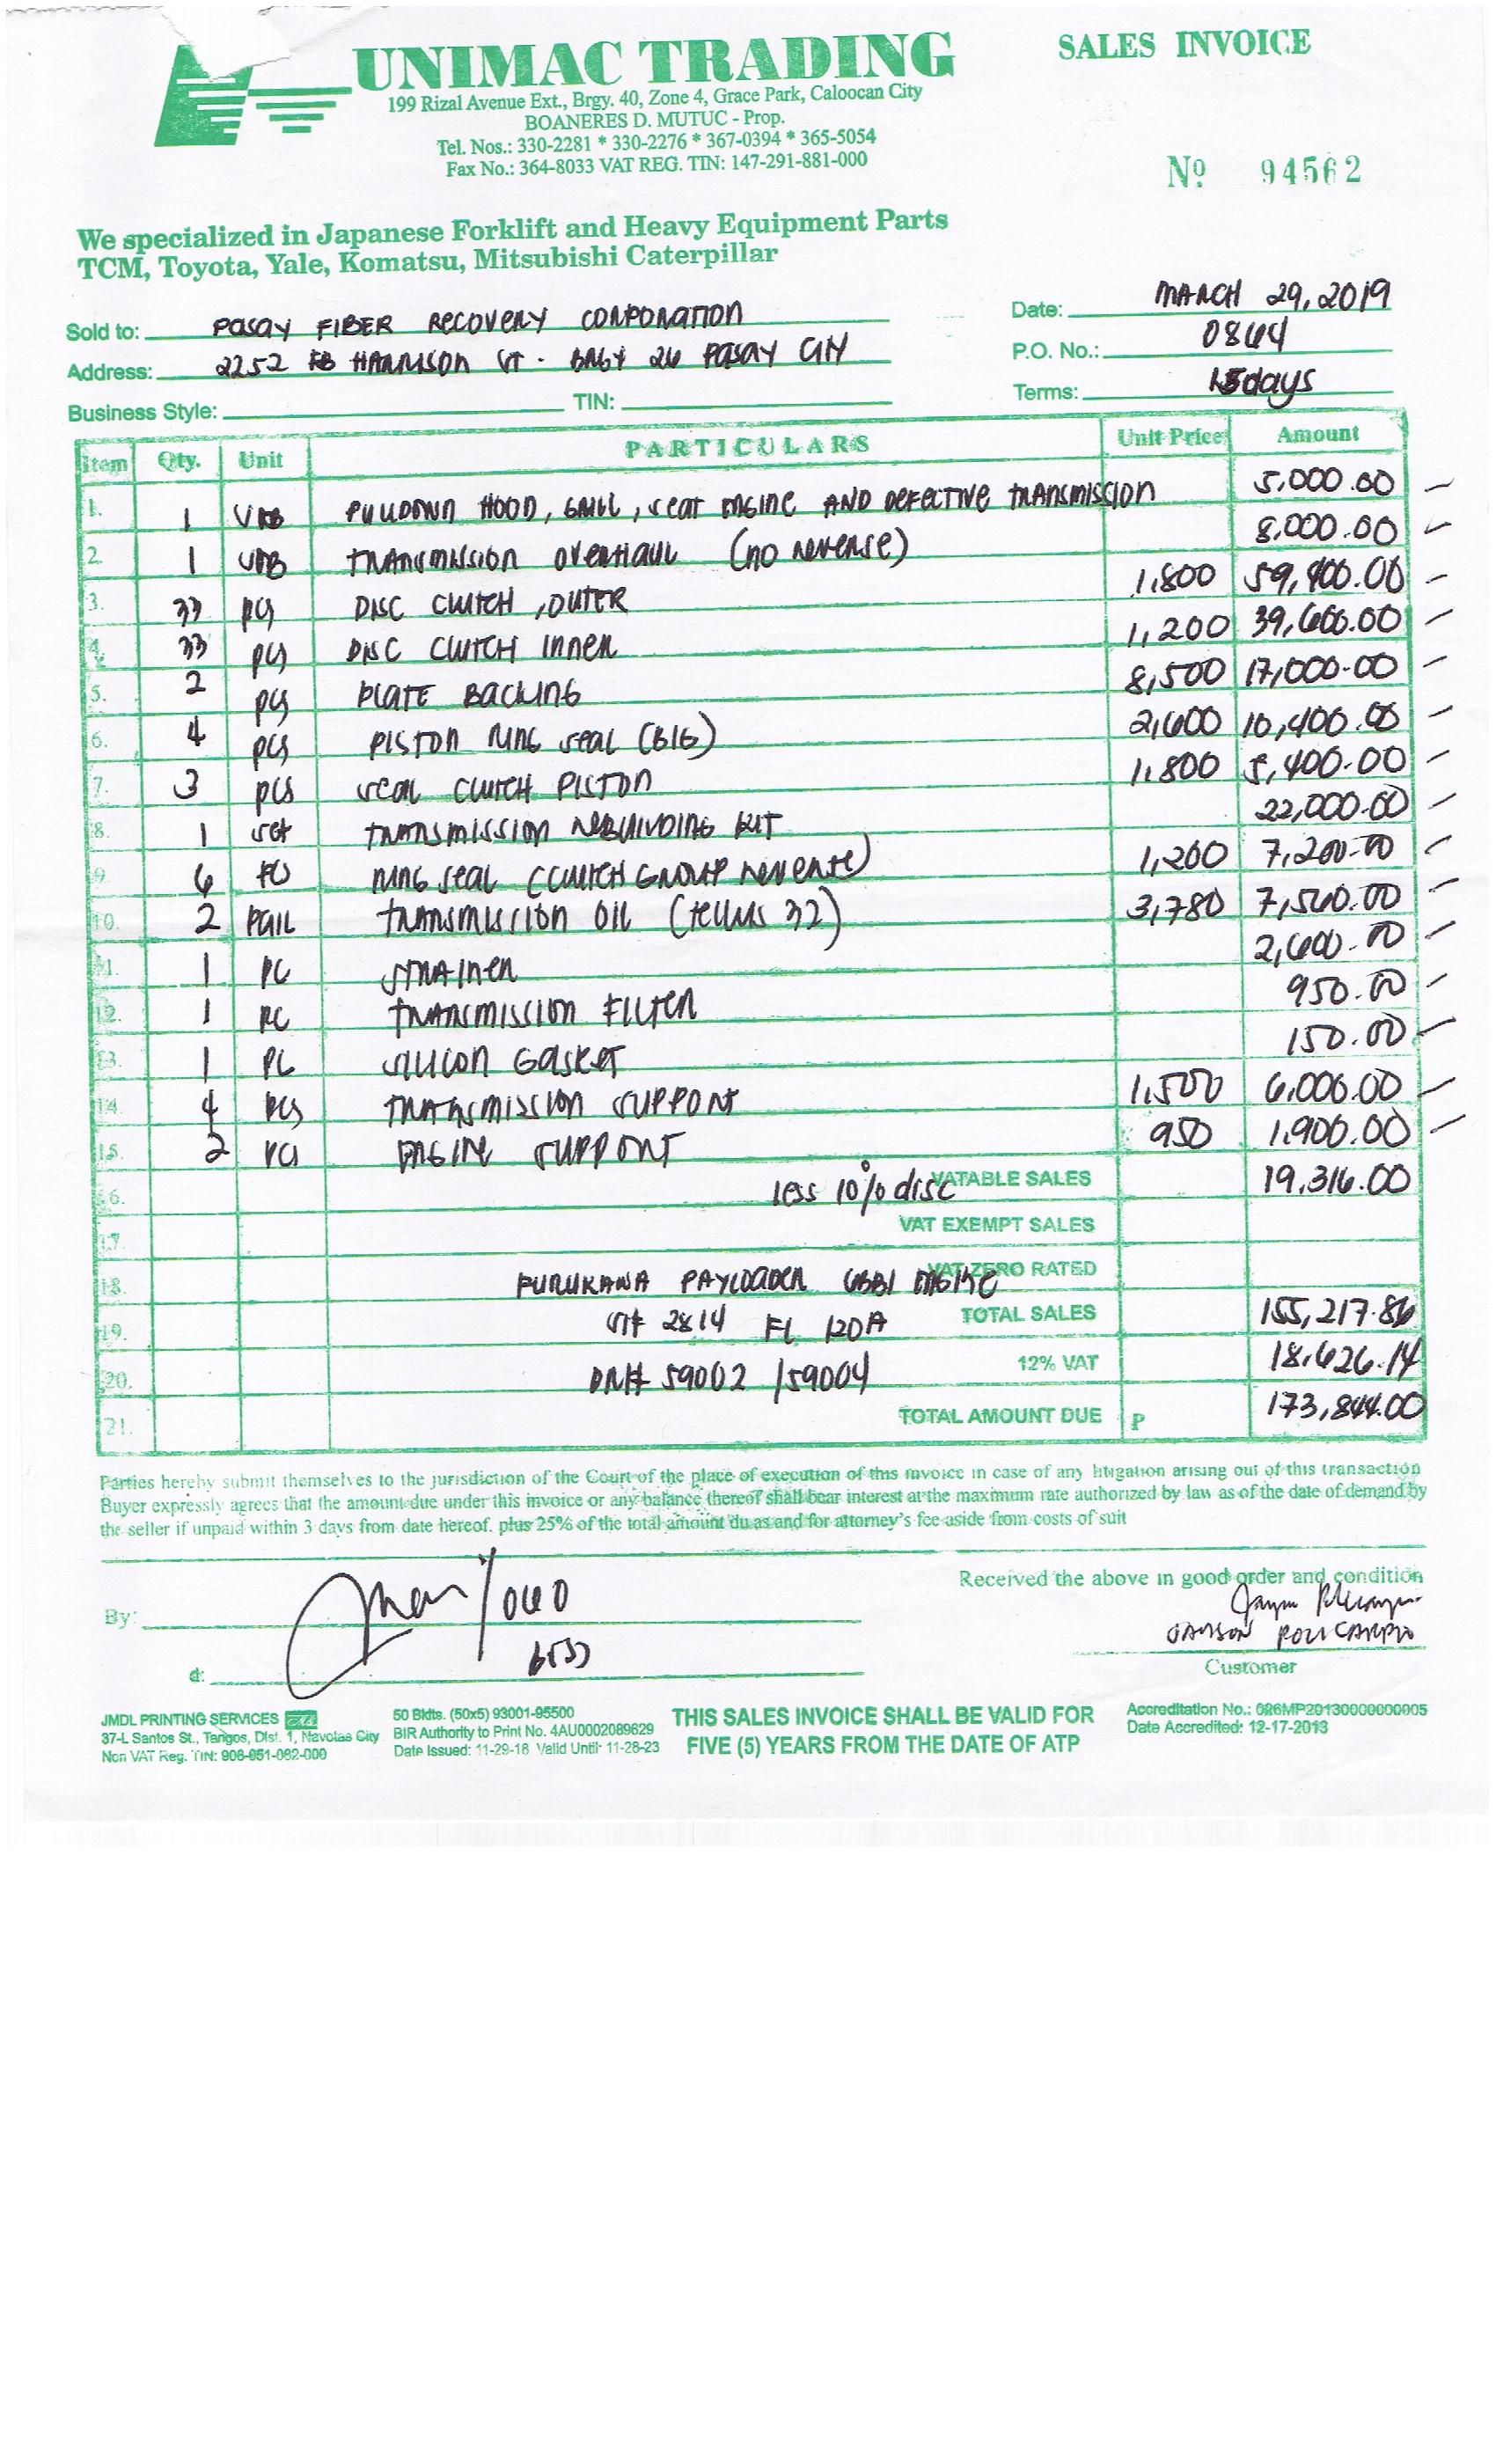 UNIMAC TRADING
SALES INVOICE
199 Rizal Avenue Ext., Brgy. 40, Zone 4, Grace Park, Caloocan City
BOANERES D. MUTUC - Prop.
Tel. Nos.: 330-2281 * 330-2276 * 367-0394 * 365-5054
Fax No.: 364-8033 VAT REG. TIN: 147-291-881-000
Nº 94562
We specialized in Japanese Forklift and Heavy Equipment Parts
TCM, Toyota, Yale, Komatsu, Mitsubishi Caterpillar
Sold to: PASAY FIBER RECOVERY CORPORATION
Date: MARCH 29, 2019
Address: 2252 FB HARRISON ST. BRGY 26 PASAY CITY
P.O. No.: 0864
Business Style: TIN:
Terms: 15 days
Item Qty. Unit PARTICULARS Unit Price Amount
1. 1 PULLDOWN HOOD, GRILL, SEAT ENGINE AND DEFECTIVE TRANSMISSION 5,000.00
2. 1 TRANSMISSION OVERHAUL (NO REVERSE) 8,000.00
3. 33 pcs DISC CLUTCH, OUTER 1,800 59,400.00
4. 33 pcs DISC CLUTCH INNER 1,200 39,600.00
5. 2 pcs PLATE BACKING 8,500 17,000.00
6. 4 pcs PISTON RING SEAL (BIG) 2,600 10,400.00
7. 3 pcs SEAL CLUTCH PISTON 1,800 5,400.00
8. 1 set TRANSMISSION REBUILDING KIT 22,000.00
9 6 RING SEAL (CLUTCH GROUP REVERSE) 1,200 7,200.00
10. 2 PAIL TRANSMISSION OIL (TELLUS 32) 3,780 7,560.00
11. 1 PC STRAINER 2,600.00
12. 1 PC TRANSMISSION FILTER 950.00
13. 1 PC SILICON GASKET 150.00
14. 4 PCS TRANSMISSION SUPPORT 1,500 6,000.00
15. 2 PCS ENGINE SUPPORT 950 1,900.00
16. less 10% disc VATABLE SALES 19,316.00
17. VAT EXEMPT SALES
18. FURUKAWA PAYLOADER 6BB1 ENGINE VAT ZERO RATED
19. 2814 FL 120A TOTAL SALES 155,217.86
20. DR# 59002 / 59004 12% VAT 18,626.14
21. TOTAL AMOUNT DUE P 173,844.00
Parties hereby submit themselves to the jurisdiction of the Court of the place of execution of this invoice in case of any litigation arising out of this transaction
Buyer expressly agrees that the amount due under this invoice or any balance thereof shall bear interest at the maximum rate authorized by law as of the date of demand by
the seller if unpaid within 3 days from date hereof. plus 25% of the total amount du as and for attorney's fee aside from costs of suit
Received the above in good order and condition
By:
JAYSON POLICARPIO
d:
Customer
JMDL PRINTING SERVICES
37-L Santos St., Tangos, Dist. 1, Navotas City
Non VAT Reg. TIN: 908-851-082-000
50 Bklts. (50x5) 93001-95500
BIR Authority to Print No. 4AU0002089629
Date Issued: 11-29-18 Valid Until: 11-28-23
THIS SALES INVOICE SHALL BE VALID FOR
FIVE (5) YEARS FROM THE DATE OF ATP
Accreditation No.: 026MP20130000000005
Date Accredited: 12-17-2013